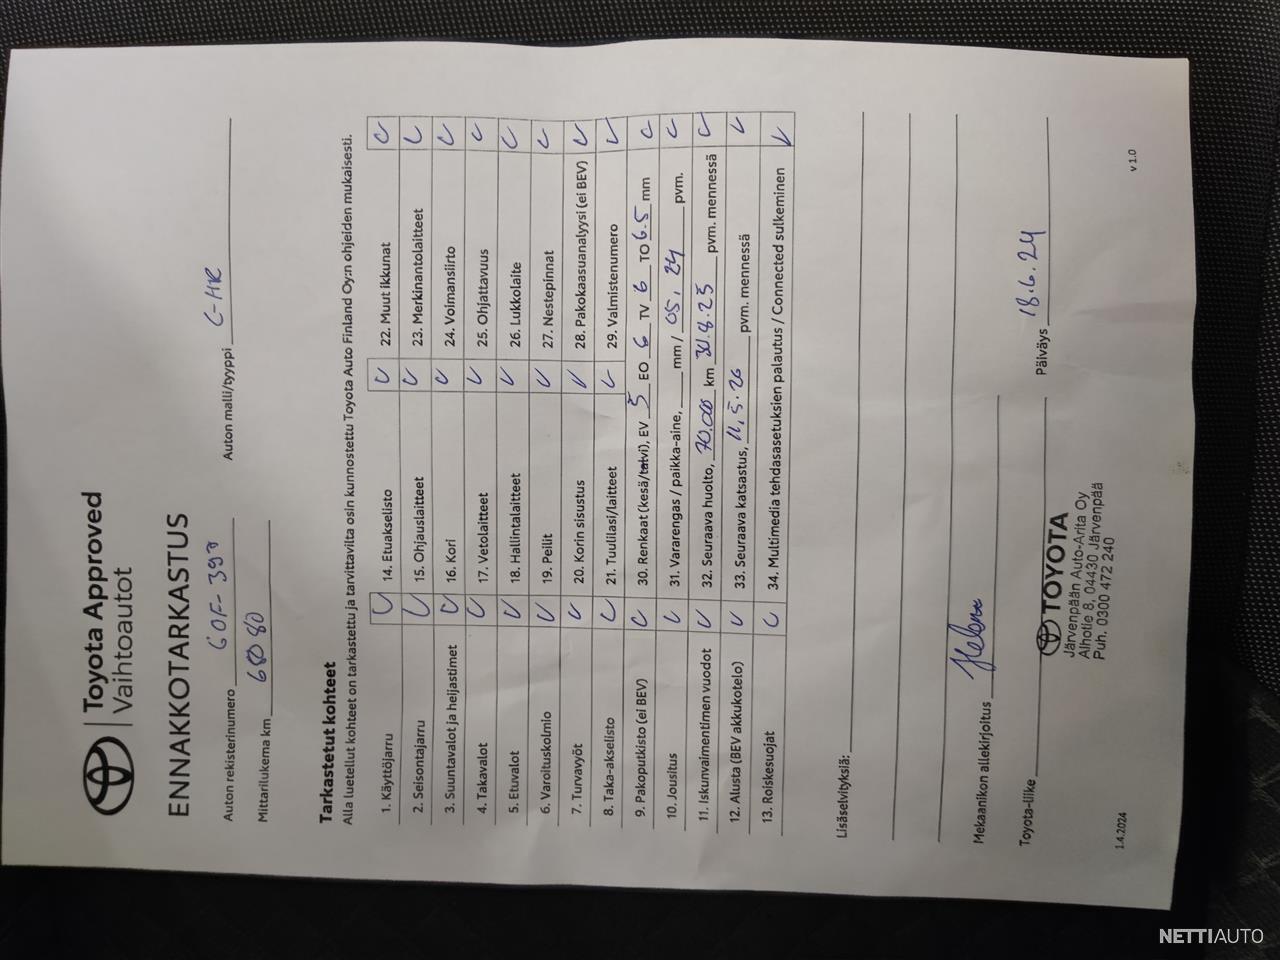 Toyota Approved
Vaihtoautot
ENNAKKOTARKASTUS
Auton rekisterinumero GOF-390 Auton malli/tyyppi C-HR
Mittarilukema km 68080
Tarkastetut kohteet
Alla luetellut kohteet on tarkastettu ja tarvittavilta osin kunnostettu Toyota Auto Finland Oy:n ohjeiden mukaisesti.
1. Käyttöjarru
2. Seisontajarru
3. Suuntavalot ja heijastimet
4. Takavalot
5. Etuvalot
6. Varoituskolmio
7. Turvavyöt
8. Taka-akselisto
9. Pakoputkisto (ei BEV)
10. Jousitus
11. Iskunvaimentimen vuodot
12. Alusta (BEV akkukotelo)
13. Roiskesuojat
14. Etuakselisto
15. Ohjauslaitteet
16. Kori
17. Vetolaitteet
18. Hallintalaitteet
19. Peilit
20. Korin sisustus
21. Tuulilasi/laitteet
22. Muut ikkunat
23. Merkinantolaitteet
24. Voimansiirto
25. Ohjattavuus
26. Lukkolaite
27. Nestepinnat
28. Pakokaasuanalyysi (ei BEV)
29. Valmistenumero
30. Renkaat (kesä/talvi), EV 5 EO 6 TV 6 TO 6.5 mm
31. Vararengas / paikka-aine, mm / 05.24 pvm.
32. Seuraava huolto, 70.000 km 30.8.25 pvm. mennessä
33. Seuraava katsastus, 11.5.26 pvm. mennessä
34. Multimedia tehdasasetuksien palautus / Connected sulkeminen
Lisäselvityksiä:
Mekaanikon allekirjoitus
Toyota-liike Päiväys 18.6.24
TOYOTA
Järvenpään Auto-Arita Oy
Alhotie 8, 04430 Järvenpää
Puh. 0300 472 240
1.4.2024 v 1.0
NETTIAUTO